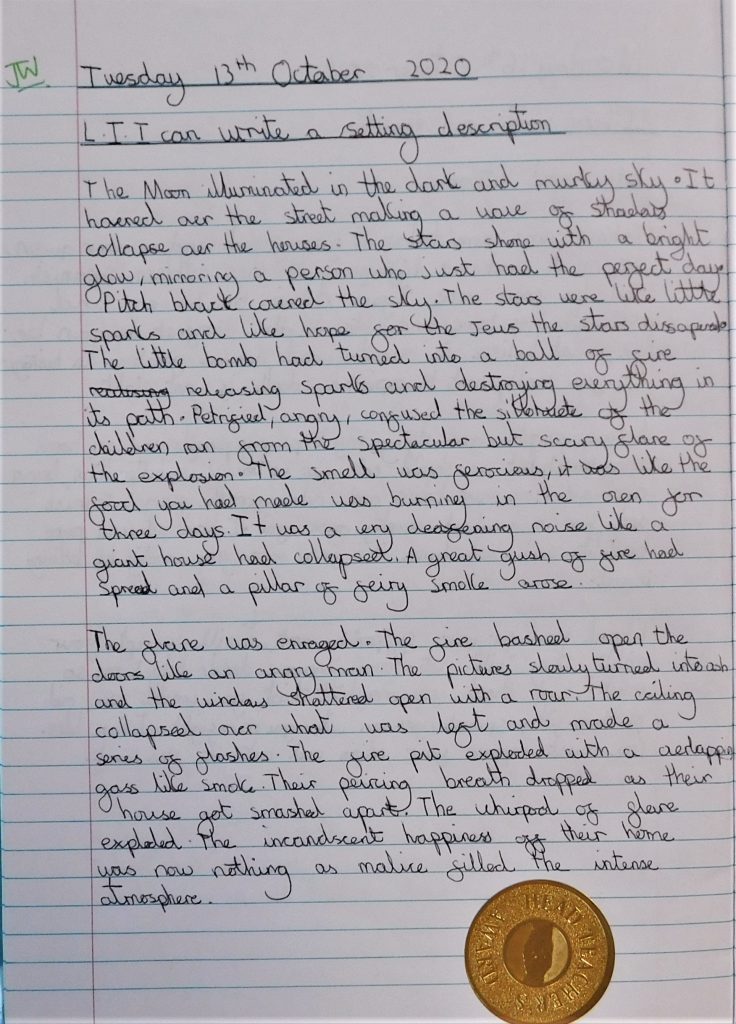 JW
Tuesday 13th October 2020
L.I. I can write a setting description
The Moon illuminated in the dark and murky sky. It
hovered over the street making a wave of shadows
collapse over the houses. The stars shone with a bright
glow, mirroring a person who just had the perfect day.
Pitch black covered the sky. The stars were like little
sparks and like hope for the Jews the stars dissaperated
The little bomb had turned into a ball of fire
releasing sparks and destroying everything in
its path. Petrified, angry, confused the of the
children ran from the spectacular but scary flare of
the explosion. The smell was ferocious, it was like the
food you had made was burning in the oven for
three days. It was a very deafening noise like a
giant house had collapsed. A great gush of fire had
spread and a pillar of feiry smoke arose.
The flare was enraged. The fire bashed open the
doors like an angry man. The pictures slowly turned into ash
and the windows shattered open with a roar. The ceiling
collapsed over what was left and made a
series of flashes. The fire pit exploded with a overlapping
gass like smoke. Their peircing breath dropped as their
house got smashed apart. The whirpool of flare
exploded. The incandscent happiness of their home
was now nothing as malice filled the intense
atmosphere.
HEAD TEACHER'S AWARD